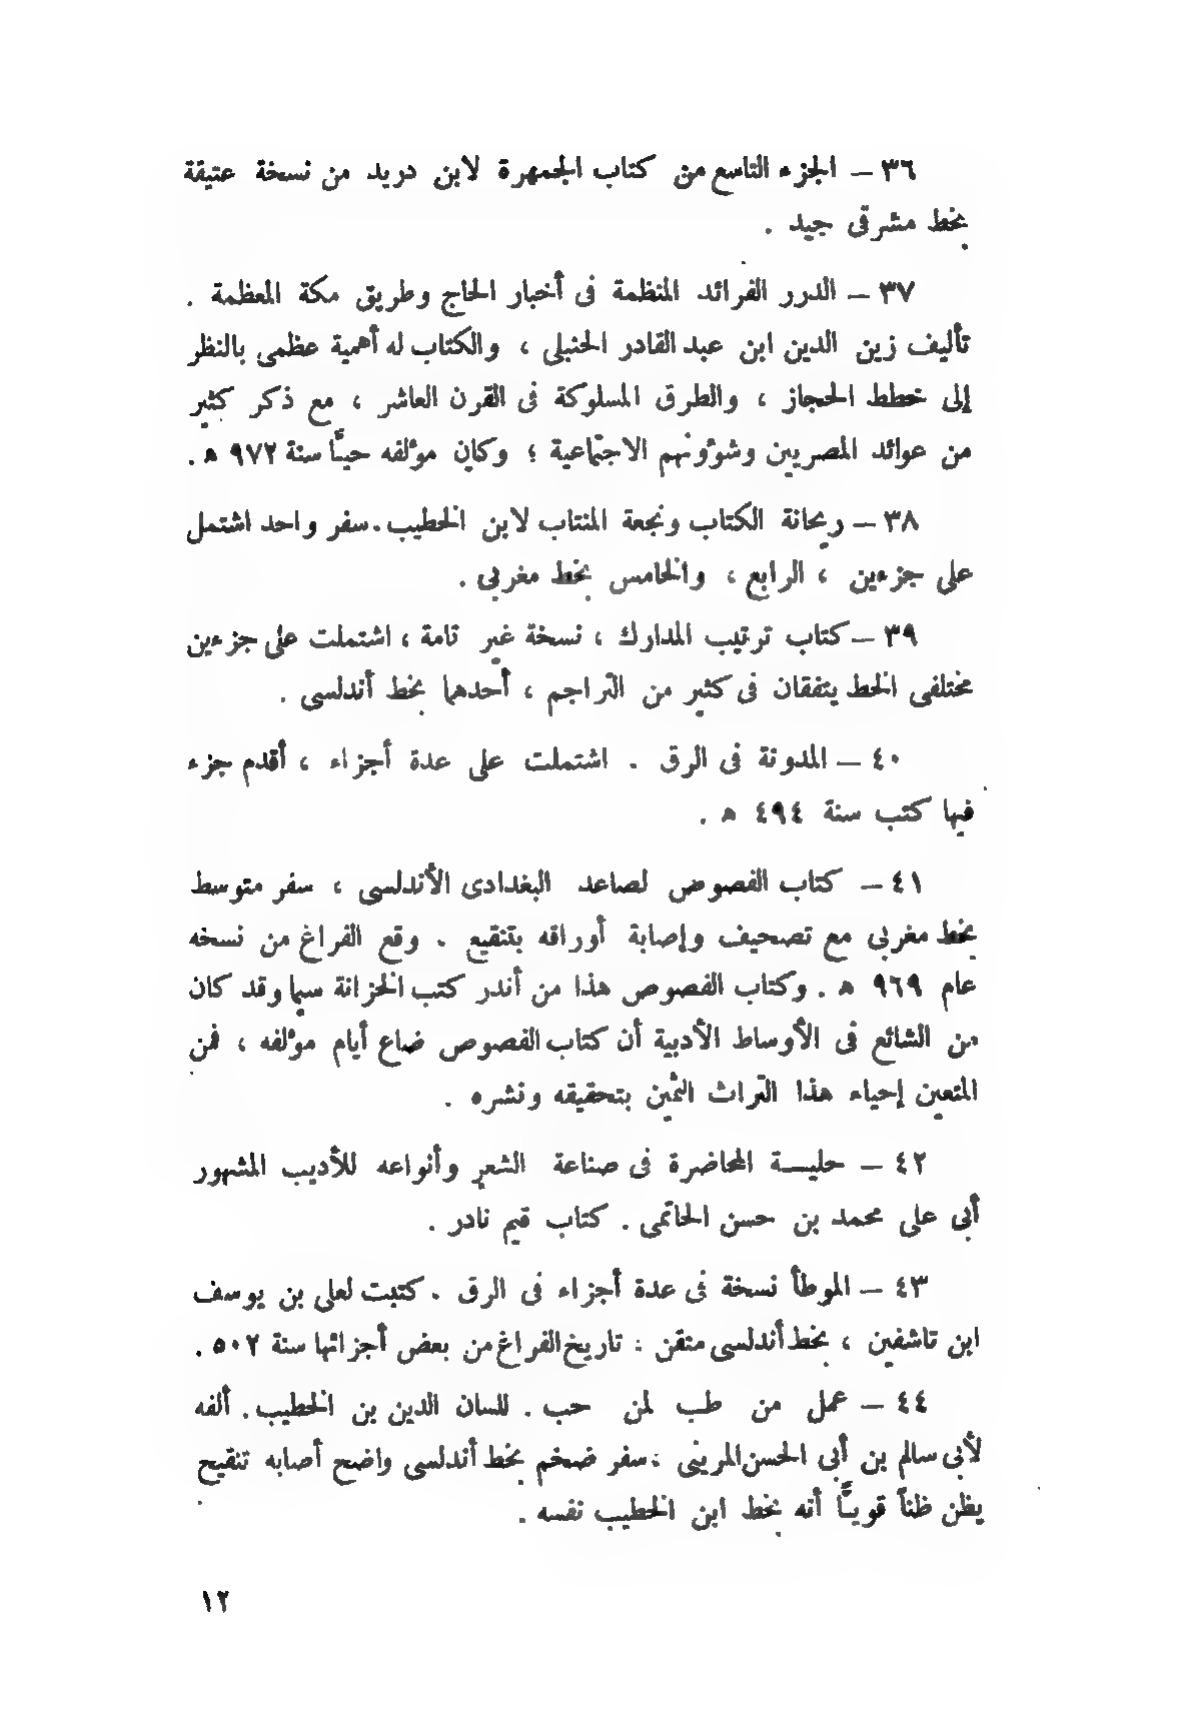 ٣٦ – الجزء التاسع من كتاب الجمهرة لابن دريد من نسخة عتيقة
بخط مشرقى جيد .
٣٧ – الدرر الفرائد المنظمة فى أخبار الحاج وطريق مكة المعظمة .
تأليف زين الدين ابن عبد القادر الحنبلى ، والكتاب له أهمية عظمى بالنظر
إلى خطط الحجاز ، والطرق المسلوكة فى القرن العاشر ، مع ذكر كثير
من عوائد المصريين وشؤونهم الاجتماعية ؛ وكان مؤلفه حيًّا سنة ٩٧٢ ه .
٣٨ – ريحانة الكتاب ونجعة المنتاب لابن الخطيب . سفر واحد اشتمل
على جزءين ، الرابع ، والخامس بخط مغربى .
٣٩ – كتاب ترتيب المدارك ، نسخة غير تامة ، اشتملت على جزءين
مختلفى الخط يتفقان فى كثير من التراجم ، أحدهما بخط أندلسى .
٤٠ – المدونة فى الرق . اشتملت على عدة أجزاء ، أقدم جزء
فيها كتب سنة ٤٩٤ ه .
٤١ – كتاب الفصوص لصاعد البغدادى الأندلسى ، سفر متوسط
بخط مغربى مع تصحيف وإصابة أوراقه بتنقيع . وقع الفراغ من نسخه
عام ٩٦٩ ه . وكتاب الفصوص هذا من أندر كتب الخزانة سيما وقد كان
من الشائع فى الأوساط الأدبية أن كتاب الفصوص ضاع أيام مؤلفه ، فمن
المتعين إحياء هذا التراث الثمين بتحقيقه ونشره .
٤٢ – حليــة المحاضرة فى صناعة الشعر وأنواعه للأديب المشهور
أبى على محمد بن حسن الحاتمى . كتاب قيم نادر .
٤٣ – الموطأ نسخة فى عدة أجزاء فى الرق . كتبت لعلى بن يوسف
ابن تاشفين ، بخط أندلسى متقن : تاريخ الفراغ من بعض أجزائها سنة ٥٠٢ .
٤٤ – عمل من طب لمن حب . للسان الدين بن الخطيب . ألفه
لأبى سالم بن أبى الحسن المرينى : سفر ضخم بخط أندلسى واضح أصابه تنقيح
يظن ظناً قويـًّا أنه بخط ابن الخطيب نفسه .
١٢